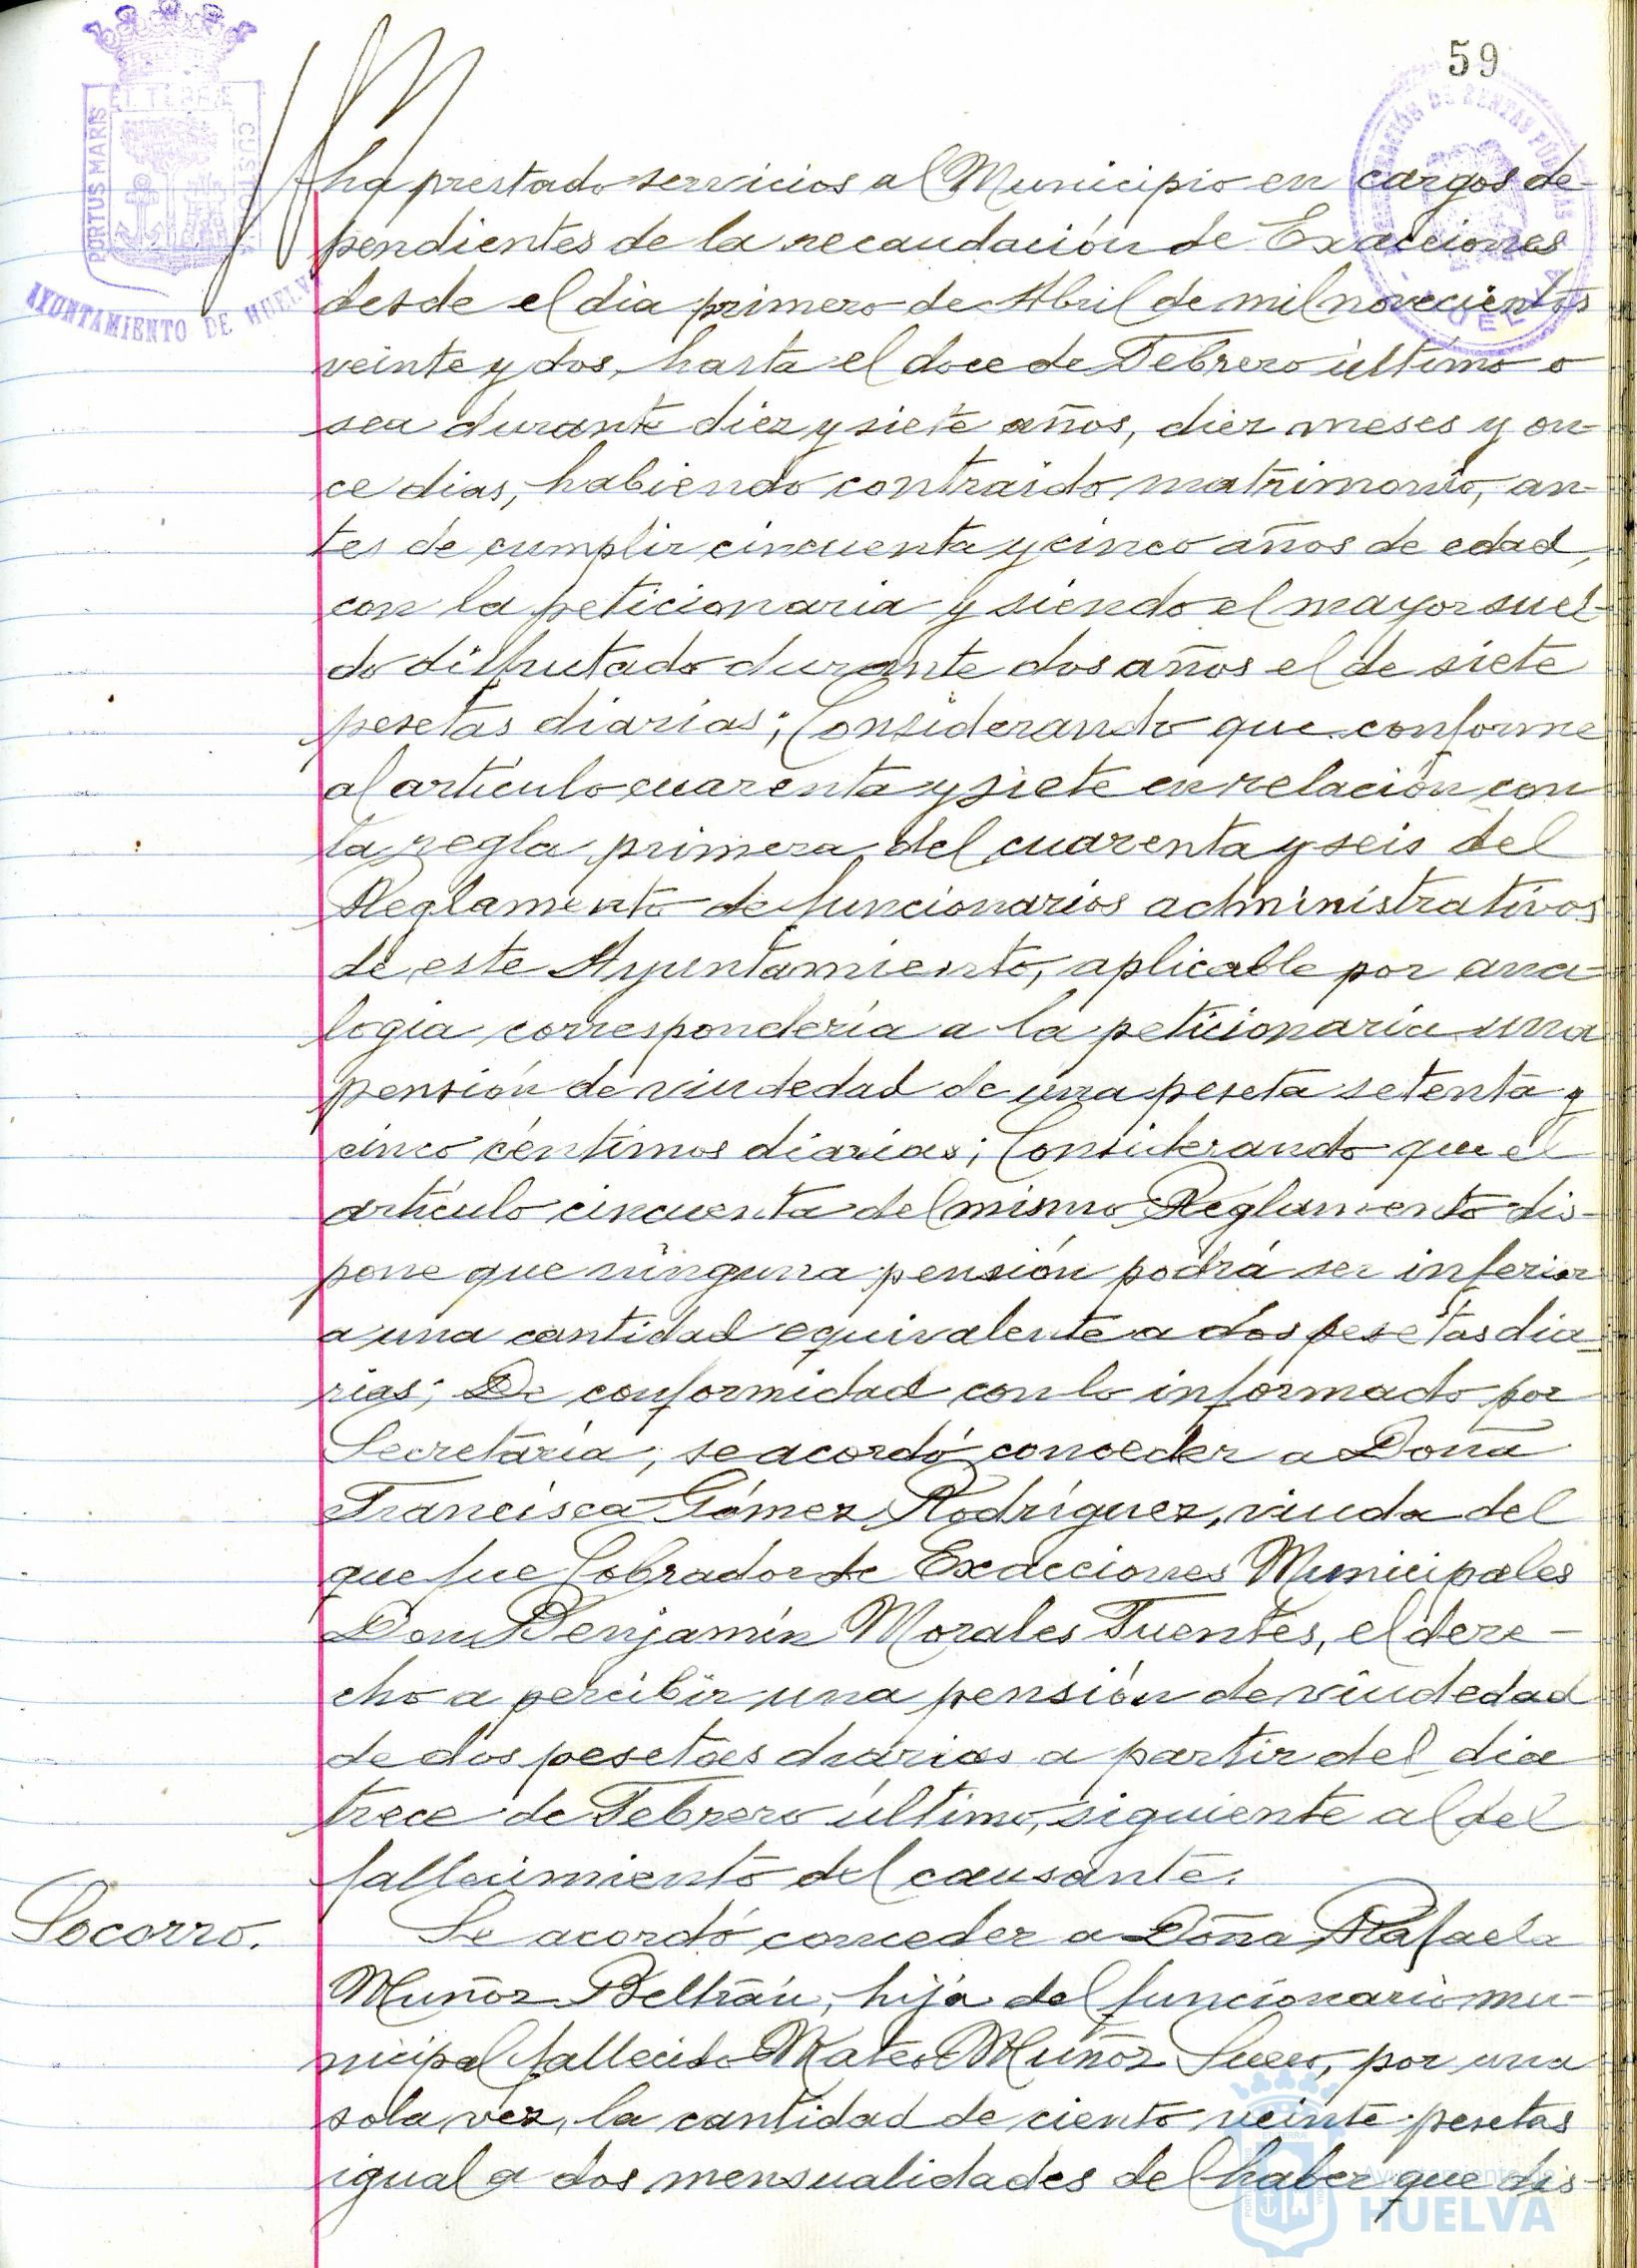 59
EL TERRÆ
PORTUS MARIS
AYUNTAMIENTO DE HUELVA
ha prestado servicios al Municipio en cargos de-
pendientes de la recaudación de Exacciones
desde el dia primero de Abril de mil novecientos
veinte y dos, hasta el doce de Febrero último o
sea durante diez y siete años, diez meses y on-
ce dias, habiendo contraido matrimonio, an-
tes de cumplir cincuenta y cinco años de edad,
con la peticionaria y siendo el mayor suel-
do disfrutado durante dos años el de siete
pesetas diarias; Considerando que conforme
al artículo cuarenta y siete en relación con
la regla primera del cuarenta y seis del
Reglamento de funcionarios administrativos
de este Ayuntamiento, aplicable por ana-
logia correspondería a la peticionaria una
pensión de viudedad de una peseta setenta y
cinco céntimos diarias; Considerando que el
artículo cincuenta del mismo Reglamento dis-
pone que ninguna pensión podrá ser inferior
a una cantidad equivalente a dos pesetas dia-
rias; De conformidad con lo informado por
Secretaría, se acordó conceder a Doña
Francisca Gómez Rodríguez, viuda del
que fue Cobrador de Exacciones Municipales
Don Benjamín Morales Fuentes, el dere-
cho a percibir una pensión de viudedad
de dos pesetas diarias a partir del dia
trece de Febrero último, siguiente al del
fallecimiento del causante.
Socorro.
Se acordó conceder a Doña Rafaela
Muñoz Beltrán, hija del funcionario mu-
nicipal fallecido Mateo Muñoz, por una
sola vez, la cantidad de ciento veinte pesetas
igual a dos mensualidades del haber que dis-
Ayuntamiento de
HUELVA